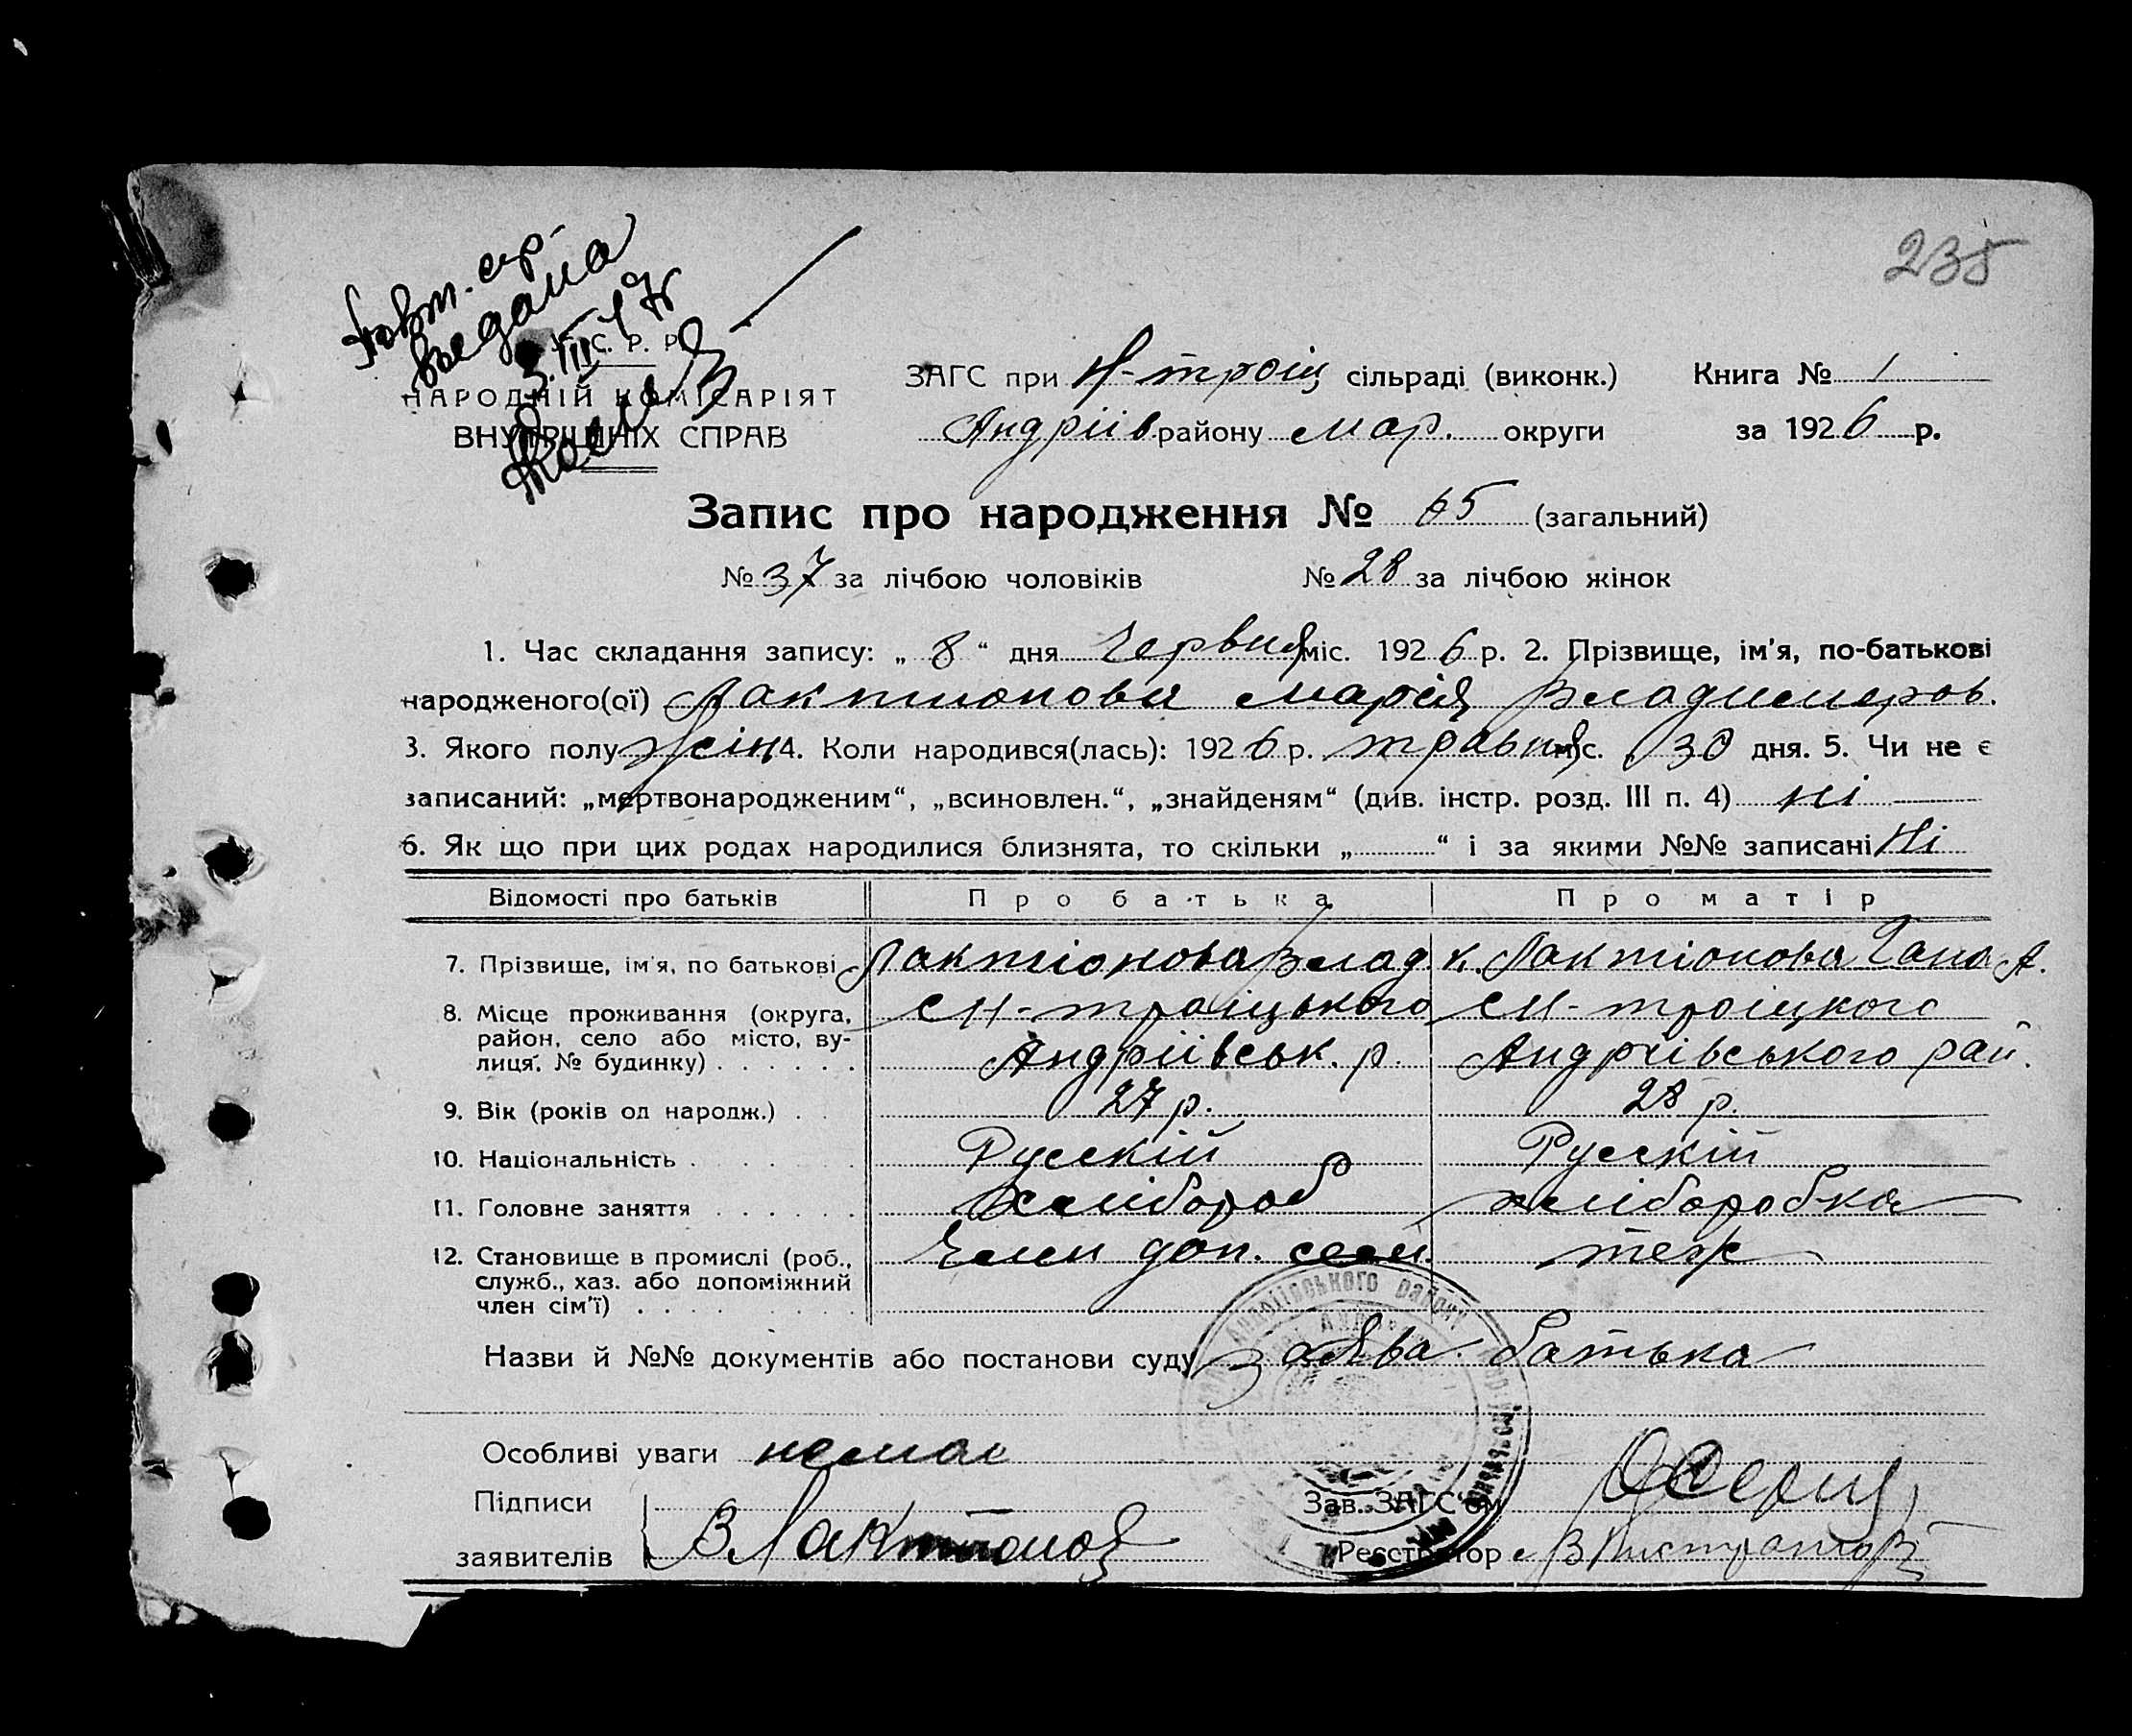 235
повт. св
видана
3.III
С. Р. Р.
НАРОДНІЙ КОМІСАРІЯТ
ВНУТРІШНІХ СПРАВ
ЗАГС при Н-троіц сільраді (виконк.) Книга № 1
Андріів району Мар. округи за 1926 р.
Запис про народження № 65 (загальний)
№ 37 за лічбою чоловіків № 28 за лічбою жінок
1. Час складання запису: „ 8 “ дня Червня міс. 1926 р. 2. Прізвище, ім'я, по-батькові
народженого(ої) Лактионова Марія Владимиров.
3. Якого полу жін 4. Коли народився(лась): 1926 р. травня міс. 30 дня. 5. Чи не є
записаний: „мертвонародженим“, „всиновлен.“, „знайденям“ (див. інстр. розд. III п. 4) ні
6. Як що при цих родах народилися близнята, то скільки „ “ і за якими №№ записані Ні
Відомості про батьків Про батька Про матір
7. Прізвище, ім'я, по батькові Лактіонова Влад. К. Лактіонова Гана А.
8. Місце проживання (округа, с Н-троіцького с Н-троіцкого
район, село або місто, ву-
лиця, № будинку) Андріівськ. р. Андріівського рай.
9. Вік (років од народж.) 27 р. 28 р.
10. Національність Русскій Русскій
11. Головне заняття Хлібороб хліборобка
12. Становище в промислі (роб., Член доп. сем. теж
служб., хаз. або допоміжний
член сім'ї)
Назви й №№ документів або постанови суду заява батька
Особливі уваги немає
Підписи Зав. ЗАГС'ом
заявителів В Лактіонов Реєстратор
Андріївського району